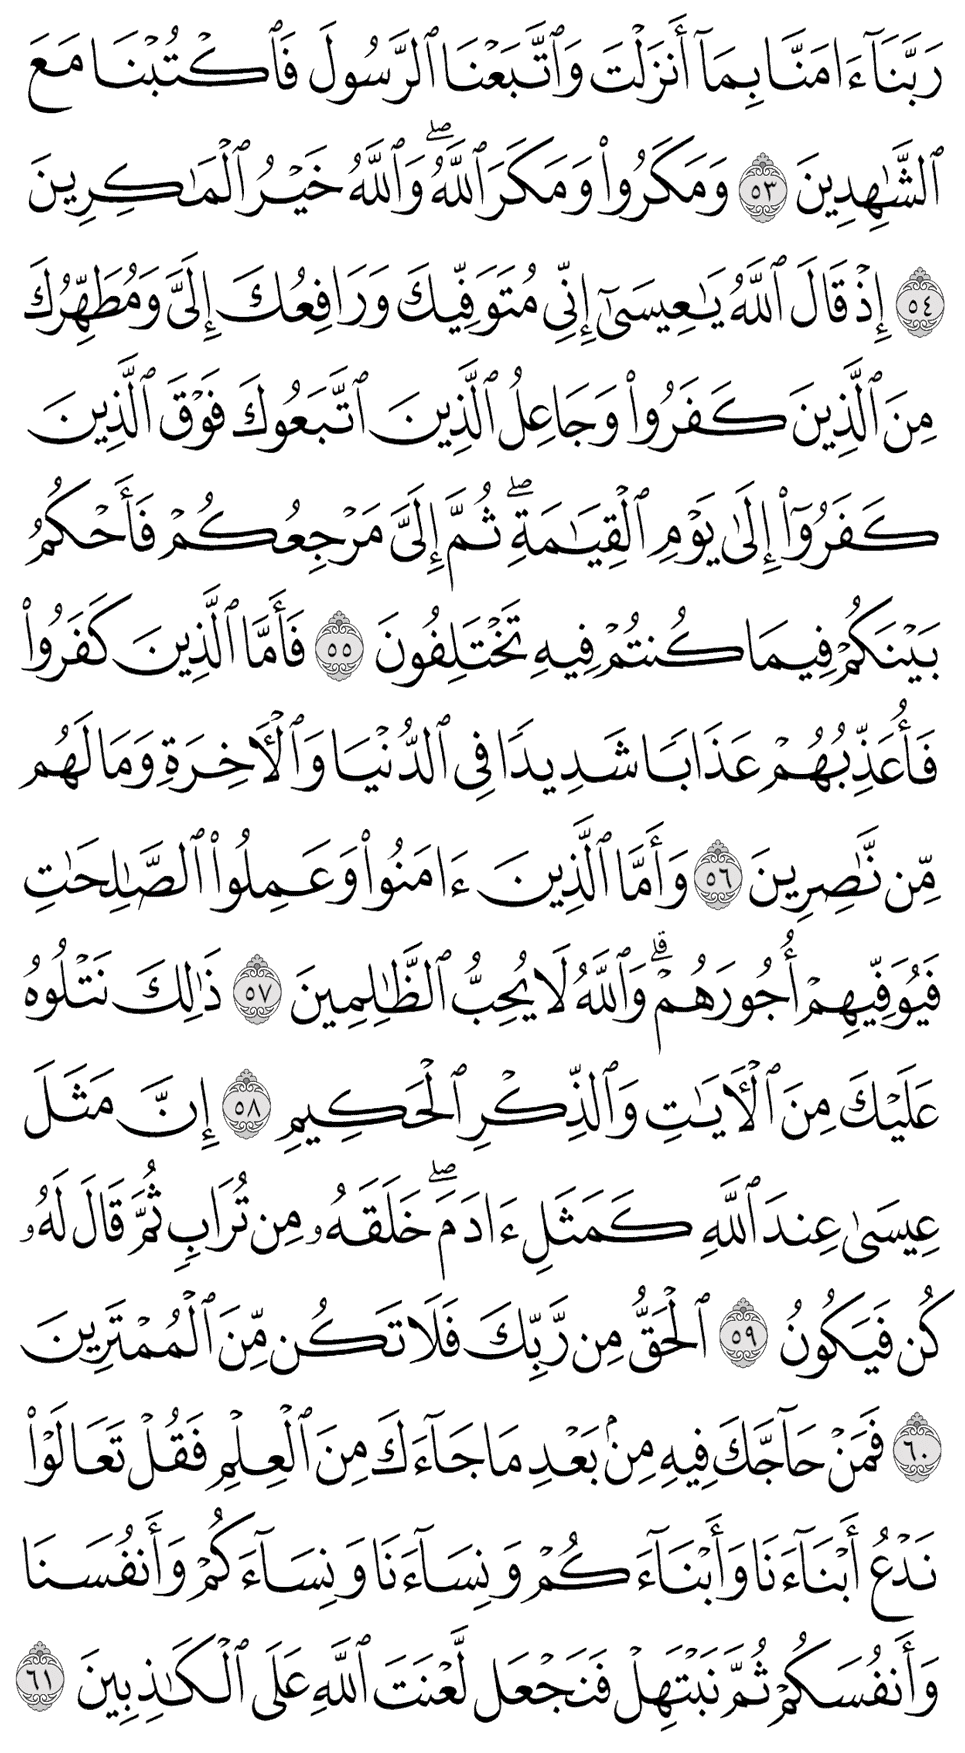 رَبَّنَآ ءَامَنَّا بِمَآ أَنزَلْتَ وَٱتَّبَعْنَا ٱلرَّسُولَ فَٱكْتُبْنَا مَعَ
ٱلشَّٰهِدِينَ ٥٣ وَمَكَرُوا۟ وَمَكَرَ ٱللَّهُ ۖ وَٱللَّهُ خَيْرُ ٱلْمَٰكِرِينَ
٥٤ إِذْ قَالَ ٱللَّهُ يَٰعِيسَىٰٓ إِنِّى مُتَوَفِّيكَ وَرَافِعُكَ إِلَىَّ وَمُطَهِّرُكَ
مِنَ ٱلَّذِينَ كَفَرُوا۟ وَجَاعِلُ ٱلَّذِينَ ٱتَّبَعُوكَ فَوْقَ ٱلَّذِينَ
كَفَرُوٓا۟ إِلَىٰ يَوْمِ ٱلْقِيَٰمَةِ ۖ ثُمَّ إِلَىَّ مَرْجِعُكُمْ فَأَحْكُمُ
بَيْنَكُمْ فِيمَا كُنتُمْ فِيهِ تَخْتَلِفُونَ ٥٥ فَأَمَّا ٱلَّذِينَ كَفَرُوا۟
فَأُعَذِّبُهُمْ عَذَابًا شَدِيدًا فِى ٱلدُّنْيَا وَٱلْأَخِرَةِ وَمَا لَهُم
مِّن نَّٰصِرِينَ ٥٦ وَأَمَّا ٱلَّذِينَ ءَامَنُوا۟ وَعَمِلُوا۟ ٱلصَّٰلِحَٰتِ
فَيُوَفِّيهِمْ أُجُورَهُمْ ۗ وَٱللَّهُ لَا يُحِبُّ ٱلظَّٰلِمِينَ ٥٧ ذَٰلِكَ نَتْلُوهُ
عَلَيْكَ مِنَ ٱلْأَيَٰتِ وَٱلذِّكْرِ ٱلْحَكِيمِ ٥٨ إِنَّ مَثَلَ
عِيسَىٰ عِندَ ٱللَّهِ كَمَثَلِ ءَادَمَ ۖ خَلَقَهُۥ مِن تُرَابٍ ثُمَّ قَالَ لَهُۥ
كُن فَيَكُونُ ٥٩ ٱلْحَقُّ مِن رَّبِّكَ فَلَا تَكُن مِّنَ ٱلْمُمْتَرِينَ
٦٠ فَمَنْ حَآجَّكَ فِيهِ مِنۢ بَعْدِ مَا جَآءَكَ مِنَ ٱلْعِلْمِ فَقُلْ تَعَالَوْا۟
نَدْعُ أَبْنَآءَنَا وَأَبْنَآءَكُمْ وَنِسَآءَنَا وَنِسَآءَكُمْ وَأَنفُسَنَا
وَأَنفُسَكُمْ ثُمَّ نَبْتَهِلْ فَنَجْعَل لَّعْنَتَ ٱللَّهِ عَلَى ٱلْكَٰذِبِينَ ٦١